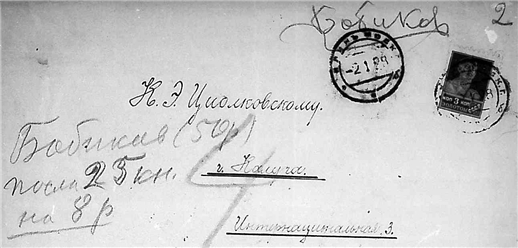 Бобиков 2
-2.1.28
К. Э. Циолковскому.
Бобиков (50р)
посла 25 кн.
на 8 р
г. Калуга.
Интернациональная 3.